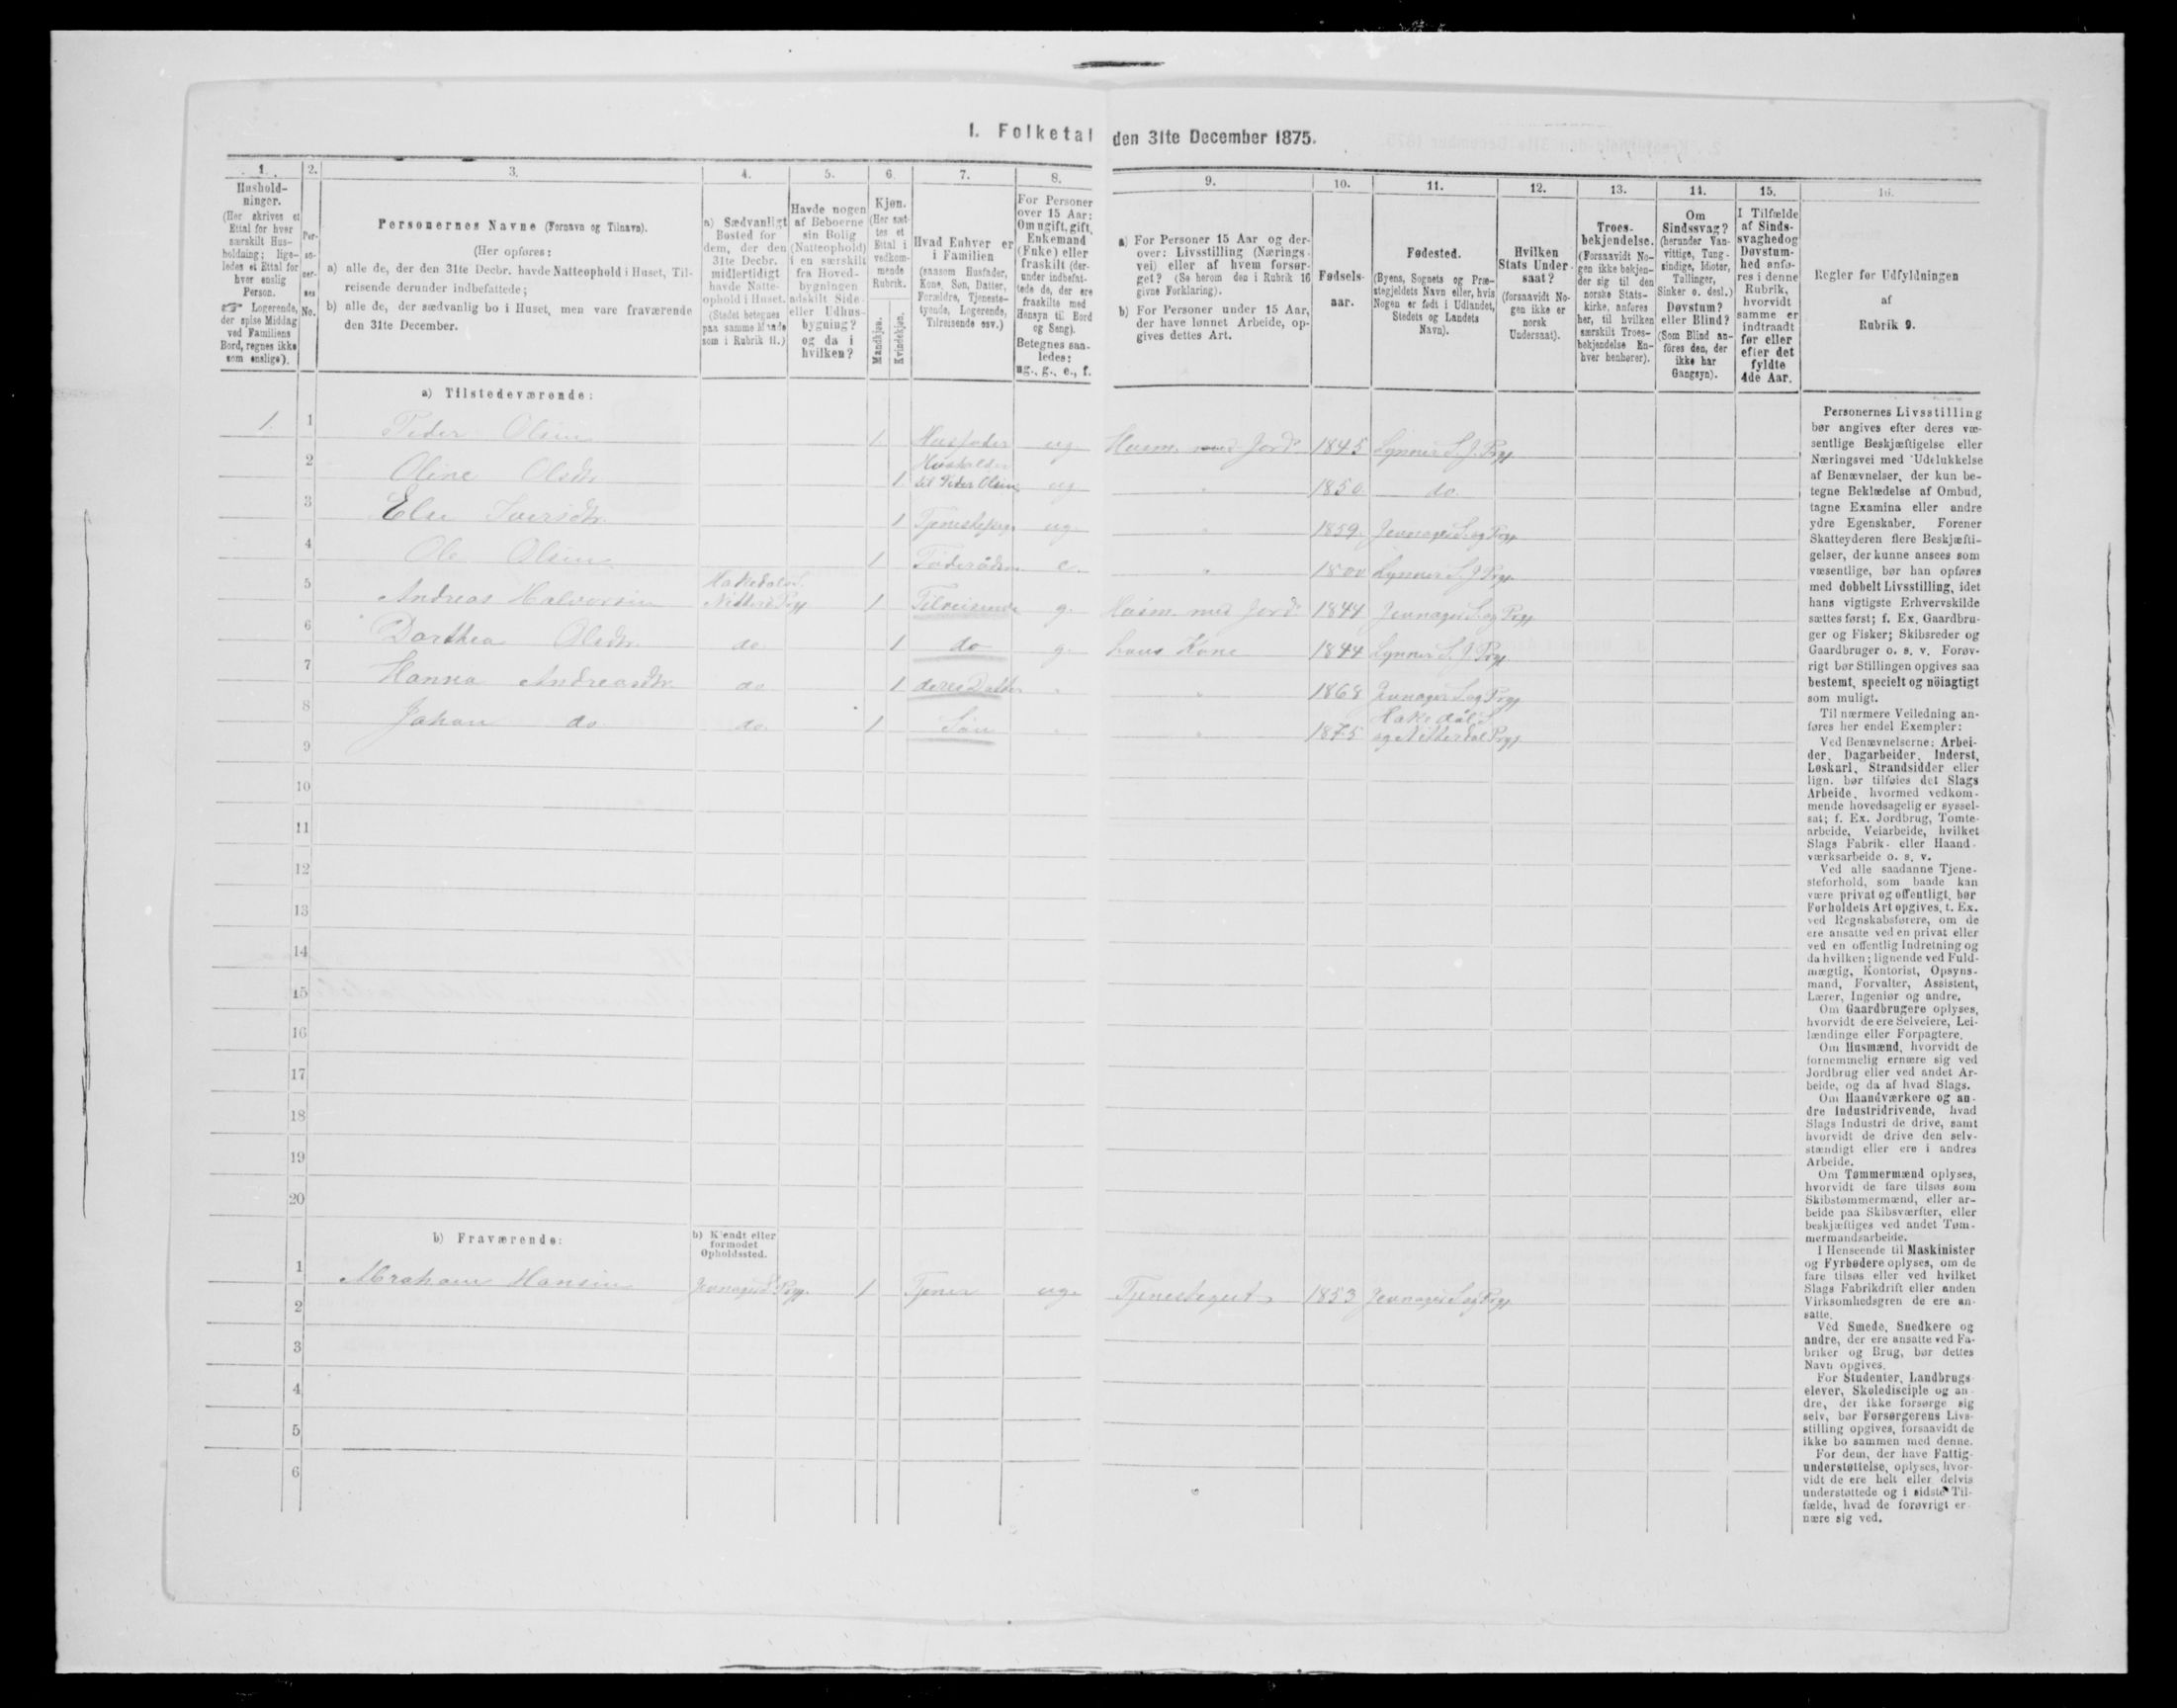 1. Folketal den 31te December 1875.
1. 2. 3. 4. 5. 6. 7. 8. 9. 10. 11. 12. 13. 14. 15. 16.
Hushold-
ninger.
(Her skrives et
Ettal for hver
særskilt Hus-
holdning; lige-
ledes et Ettal for
hver enslig
Person.
☞ Logerende,
der spise Middag
ved Familiens
Bord, regnes ikke
som enslige).
Per-
so-
ner-
nes
No.
Personernes Navne (Fornavn og Tilnavn).
(Her opføres:
a) alle de, der den 31te Decbr. havde Natteophold i Huset, Til-
reisende derunder indbefattede;
b) alle de, der sædvanlig bo i Huset, men vare fraværende
den 31te December.
a) Sædvanligt
Bosted for
dem, der den
31te Decbr.
midlertidigt
havde Natte-
ophold i Huset.
(Stedet betegnes
paa samme Maade
som i Rubrik 11.)
Havde nogen
af Beboerne
sin Bolig
(Natteophold)
i en særskilt
fra Hoved-
bygningen
adskilt Side-
eller Udhus-
bygning?
og da i
hvilken?
Kjøn.
(Her sæt-
tes et
Ettal i
vedkom-
mende
Rubrik.
Mandkjøn.
Kvindekjøn.
Hvad Enhver er
i Familien
(saasom Husfader,
Kone, Søn, Datter,
Forældre, Tjeneste-
tyende, Logerende,
Tilreisende osv.)
For Personer
over 15 Aar:
Om ugift, gift,
Enkemand
(Enke) eller
fraskilt (der-
under indbefat-
tede de, der ere
fraskilte med
Hensyn til Bord
og Seng).
Betegnes saa-
ledes:
ug., g., e., f.
a) For Personer 15 Aar og der-
over: Livsstilling (Nærings-
vei) eller af hvem forsør-
get? (Se herom den i Rubrik 16
givne Forklaring).
b) For Personer under 15 Aar,
der have lønnet Arbeide, op-
gives dettes Art.
Fødsels-
aar.
Fødested.
(Byens, Sognets og Præ-
stegjeldets Navn eller, hvis
Nogen er født i Udlandet,
Stedets og Landets
Navn).
Hvilken
Stats Under-
saat?
(forsaavidt No-
gen ikke er
norsk
Undersaat).
Troes-
bekjendelse.
(Forsaavidt No-
gen ikke bekjen-
der sig til den
norske Stats-
kirke, anføres
her, til hvilken
særskilt Troes-
bekjendelse En-
hver henhører).
Om
Sindssvag?
(herunder Van-
vittige, Tung-
sindige, Idioter,
Tullinger,
Sinker o. desl.)
Døvstum?
eller Blind?
(Som Blind an-
föres den, der
ikke har
Gangsyn).
I Tilfælde
af Sinds-
svaghed og
Døvstum-
hed anfø-
res i denne
Rubrik,
hvorvidt
samme er
indtraadt
før eller
efter det
fyldte
4de Aar.
Regler for Udfyldningen
af
Rubrik 9.
a) Tilstedeværende:
1. 1 Peder Olsen 1 Husfader ug Husm. med Jord 1845 Lynner S. J. Prgj
2 Oline Olsdtr. 1 Husholder det Peder Olsen ug " 1850 do.
3 Else Iversdtr. 1 Tjenestepige ug. " 1859. Jevnager S. og Prgj
4 Ole Olsen 1 Föderådsm e. " 1800 Lynner S. J Prgj
5 Andreas Halvorsen Hakedals S. Nittedal Prgj 1 Tilreisende g. Husm. med Jord 1844 Jevnager S. og Prgj
6 Dorthea Olsdtr. do 1 do g. hans Kone 1844 Lynner S. J. Prgj
7 Hanna Andreasdtr. do 1 deres Datter " " 1868 Jevnager S. og Prgj
8 Johan do do. 1 Søn " " 1875 Hakedal S. og Nittedal Prgj
9
10
11
12
13
14
15
16
17
18
19
20
b) Fraværende:
b) Kjendt eller
formodet
Opholdssted.
1 Abraham Hansen Jevnager S. Prgj. 1 Tjener ug. Tjenestegut 1853 Jevnager S. og Prgj
2
3
4
5
6
Personernes Livsstilling
bør angives efter deres væ-
sentlige Beskjæftigelse eller
Næringsvei med Udelukkelse
af Benævnelser, der kun be-
tegne Beklædelse af Ombud,
tagne Examina eller andre
ydre Egenskaber. Forener
Skatteyderen flere Beskjæfti-
gelser, der kunne ansees som
væsentlige, bør han opføres
med dobbelt Livsstilling, idet
hans vigtigste Erhvervskilde
sættes først; f. Ex. Gaardbru-
ger og Fisker; Skibsreder og
Gaardbruger o. s. v. Forøv-
rigt bør Stillingen opgives saa
bestemt, specielt og nöiagtigt
som muligt.
Til nærmere Veiledning an-
føres her endel Exempler:
Ved Benævnelserne: Arbei-
der, Dagarbeider, Inderst,
Løskarl, Strandsidder eller
lign. bør tilføies det Slags
Arbeide, hvormed vedkom-
mende hovedsagelig er syssel-
sat; f. Ex. Jordbrug, Tomte-
arbeide, Veiarbeide, hvilket
Slags Fabrik- eller Haand-
værksarbeide o. s. v.
Ved alle saadanne Tjene-
steforhold, som baade kan
være privat og offentligt, bør
Forholdets Art opgives, t. Ex.
ved Regnskabsførere, om de
ere ansatte ved en privat eller
ved en offentlig Indretning og
da hvilken; lignende ved Fuld-
mægtig, Kontorist, Opsyns-
mand, Forvalter, Assistent,
Lærer, Ingeniør og andre.
Om Gaardbrugere oplyses,
hvorvidt de ere Selveiere, Lei-
lændinge eller Forpagtere.
Om Husmænd, hvorvidt de
fornemmelig ernære sig ved
Jordbrug eller ved andet Ar-
beide, og da af hvad Slags.
Om Haandværkere og an-
dre Industridrivende, hvad
Slags Industri de drive, samt
hvorvidt de drive den selv-
stændigt eller ere i andres
Arbeide.
Om Tømmermænd oplyses,
hvorvidt de fare tilsøs som
Skibstømmermænd, eller ar-
beide paa Skibsværfter, eller
beskjæftiges ved andet Tøm-
mermandsarbeide.
I Henseende til Maskinister
og Fyrbødere oplyses, om de
fare tilsøs eller ved hvilket
Slags Fabrikdrift eller anden
Virksomhedsgren de ere an-
satte.
Ved Smede, Snedkere og
andre, der ere ansatte ved Fa-
briker og Brug, bør dettes
Navn opgives.
For Studenter, Landbrugs-
elever, Skoledisciple og an-
dre, der ikke forsørge sig
selv, bør Forsørgerens Livs-
stilling opgives, forsaavidt de
ikke bo sammen med denne.
For dem, der have Fattig-
understøttelse, oplyses, hvor-
vidt de ere helt eller delvis
understøttede og i sidste Til-
fælde, hvad de forøvrigt er-
nære sig ved.